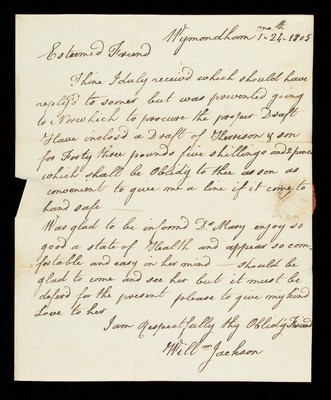 Wymondham 1mo 24th 1805
Esteemed Friend
Thine I duly receiv'd which should have
replij'd to sooner but was prevented going
to Norwhich to procure the proper Draft
Have inclosd a Draft of Harrison & son
for Forty three pounds five shillings and 2 pence
which shall be Oblidg to thee as soon as
convenient to give me a line if it come to
hand safe
Was glad to be informd Dr Mary enjoy so
good a state of Health and appear so com=
fortable and easy in her mind — should be
glad to come and see her but it must be
deferd for the present please to give my kind
Love to her
I am Respectfully thy Oblidg'd Friend
Willm Jackson